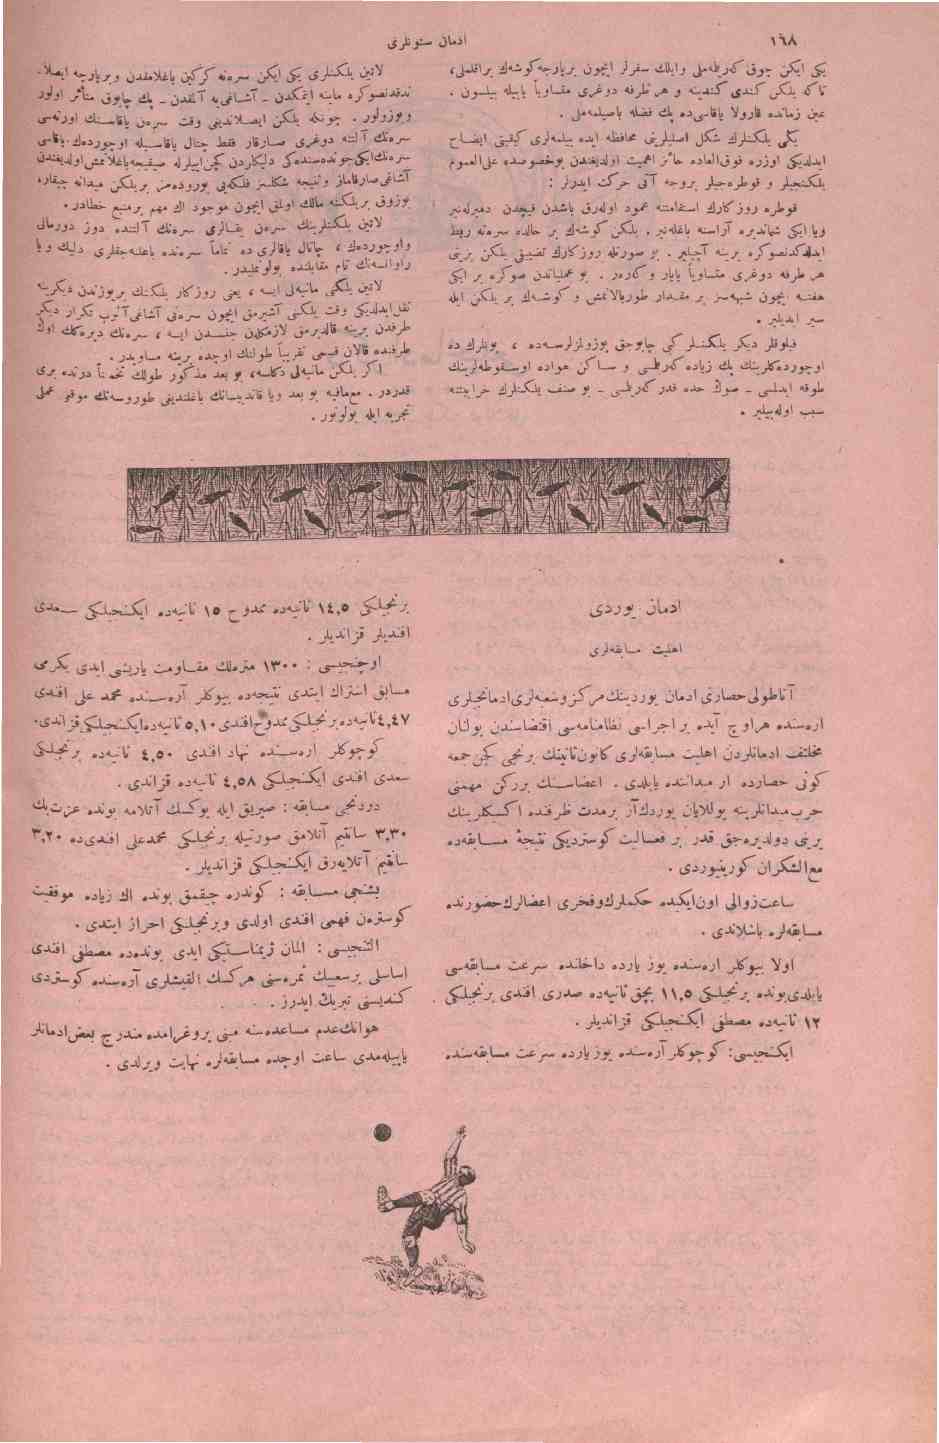 ١٦٨
ادمان سئونلری
یكی ایكن چوق كه ریله ملی وایلك سفرلر ایچون برپارچه كوشه ك براقلملی،
تاكه یلكن كندی كندینه و هر طرفه دوغری متساویاً یاییله بیلسون .
عین زمانده قارولا یاقاسی ده پك فضله باصیلمه ملی .
یكی یلكنلرك شكل اصلیلرینی محافظه ایده بیلمه لری كیفیتی ایضاح
ایدلدیكی اوزره فوق العاده حائز اهمیت اولدیغندن بوخصوصده علی العموم
یلكنجیلر و قوطره جیلر بروجه آتی حركت ایدرلر :
قوطره روزكارك استقامتنه عمود اوله رق باشدن قیچدن دمیرله نیر
ویا ایكی شماندیره آراسنه باغله نیر . یلكن كوشه ك بر حالده سره نه ربط
ایدلدكدنصوكره یرینه آچیلیر . بو صورتله روزكارك تضییقی یلكن یرینی
هر طرفه دوغری متساویاً یایار و كه رر . بو عملیاتدن صوكره بر ایكی
هفته ایچون شبهه سز بر مقدار طوربالانمش و كوشه ك بر یلكن ایله
سیر ایدیلیر .
فیلوقلر دیكر یلكنلر كبی چابوجق بوزولزلرسه ده ، بونلرك ده
اوچورده كلرینك پك زیاده كه ریلمسی و ساكن هواده اوسقوطه لرینك
طوقه ایدلمسی ـ صوڭ حده قدر كه ریلمسی ـ بو صنف یلكنلرك خرابیتنه
سبب اوله بیلیر .
لاتین یلكنلری یكی ایكن سره نه كركین باغلامقدن وبرپارچه ایصلا
ندقدنصوكره ماینه ایتمكدن ـ آشاغی یه آلمقدن ـ پك چابوق متأثر اولور
وبوزولور . چونكه یلكن ایصلاندیغی وقت سره ن یاقاسنك اورته سی
سره نك آلتنه دوغری صارقار فقط چتال یاقاسیله اوچورده ك یاقاسی
سره نك ایكی جونده سنده كی دلیكلردن كچن ایپلرله صیقیجه باغلانمش اولدیغندن
آشاغی صارقاماز ونتیجه شكلسز فلكه یی یوروده مز بریلكن میدانه چیقار،
بوزوق بریلكنه مالك اولمق ایچون موجود اك مهم برمنبع خطادر .
لاتین یلكنلرینك سره ن یقالری سره نك آلتنده دوز دورمالی
واوچورده ك ، چاتال یاقالری ده تماماً سره نده باغلنه جقلری دلیك ویا
راوانسه نك تام مقابلنده بولونملیدر .
لاتین یلكنی مانیه لی ایسه ، یعنی روزكار یلكنك بریوزندن دیكرینه
نقل ایدلدیكی وقت یلكنی آشیرمق ایچون سره نی آشاغی آلوب تكرار دیكر
طرفدن یرینه قالدیرمق لازمكلن جنسدن ایسه ، سره نك دیره كك اوڭ
طرفنده قالان قسمی تقریباً طولنك اوچده برینه مساویدر .
اكر یلكن مانیه لی دكلسه ، بو بعد مذكور طولك تخمیناً درتده بری
قدردر . مع مافیه بو بعد ویا قاندیسانك باغلندیغی طوروسه نك موقعی عملی
تجربه ایله بولونور .
ادمان یوردی
اهلیت مسابقه لری
آناطولی حصاری ادمان یوردینك مركز وشعبه لری ادمانجیلری
اره سنده هر اوچ آیده بر اجراسی نظامنامه سی اقتضاسندن بولنان
مختلف ادمانلردن اهلیت مسابقه لری كانون ثانینك برنجی كچن جمعه
كونی حصارده ار میداننده یاپلدی . اعضاسنك بررکن مهمنی
حرب میدانلرینه یوللایان یوردك آز برمدت ظرفنده اكسیكلرینك
یرینی دولدیره جق قدر بر فعالیت كوستردیكی نتیجۀ مسابقه ده
مع الشكران كورینیوردی .
ساعت زوالی اون ایكیده حكملرك وفخری اعضالرك حضورنده
مسابقه لره باشلاندی .
اولا بیوكلر اره سنده یوز یارده داخلنده سرعت مسابقه سی
یاپلدی بونده برنجیلكی ١١,٥ بچق ثانیه ده صدری افندی برنجیلكی
١٢ ثانیه ده مصطفی ایكنجیلكی قزاندیلر .
ایكنجیسی : كوچوكلر آره سنده یوز یارده سرعت مسابقه سنده
برنجیلكی ١٤,٥ ثانیه ده ممدوح ١٥ ثانیه ده ایكنجیلكی سعدی
افندیلر قزاندیلر .
اوچنجیسی : ١٣٠٠ متره لك مقاومت یاریشی ایدی یكرمی
مسابق اشتراك ایتدی نتیجه ده بیوكلر آره سنده محمد علی افندی
٤,٤٧ ثانیه ده برنجیلكی ممدوح افندی ٥,١٠ ثانیه ده ایكنجیلكی قزاندی.
كوچوكلر اره سنده نهاد افندی ٤,٥٠ ثانیه ده برنجیلكی
سعدی افندی ایكنجیلكی ٤,٥٨ ثانیه ده قزاندی .
دردنجی مسابقه : صیریق ایله یوكسك آتلامه بونده عزت بك
٣,٣٠ سانتیم آتلامق صورتیله برنجیلكی محمدعلی افندی ده ٣,٢٠
سانتیم آتلایه رق ایكنجیلكی قزاندیلر .
بشنجی مسابقه : كوندره چیقمق بونده اك زیاده موفقیت
كوستره ن فهمی افندی اولدی وبرنجیلكی احراز ایتدی .
التنجیسی : المان ژیمناستیكی ایدی بونده ده مصطفی افندی
اساسلی برسعینك ثمره سنی هركسك القیشلری آره سنده كوستردی
كندیسنی تبریك ایدرز .
هوانك عدم مساعده سنه مبنی پروغرامده مندرج بعض ادمانلر
یاپیله مدی ساعت اوچده مسابقه لره نهایت ویرلدی .